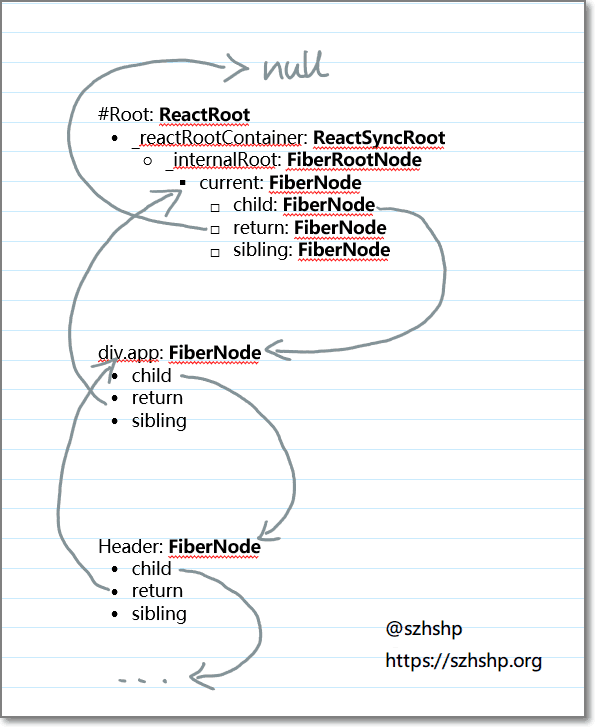 null
#Root: ReactRoot
• _reactRootContainer: ReactSyncRoot
○ _internalRoot: FiberRootNode
▪ current: FiberNode
□ child: FiberNode
□ return: FiberNode
□ sibling: FiberNode
div.app: FiberNode
• child
• return
• sibling
Header: FiberNode
• child
• return
• sibling
@szhshp
https://szhshp.org
...